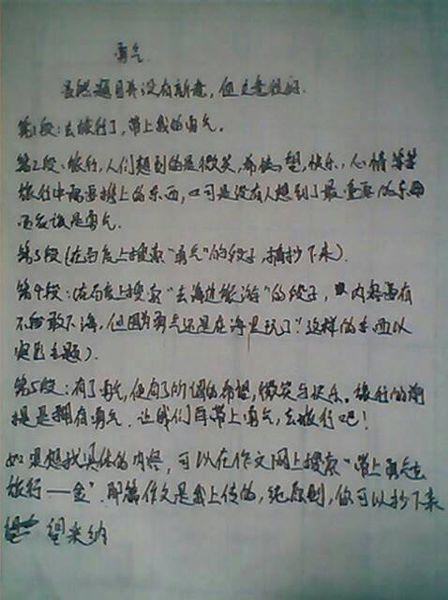 勇气
虽然题目并没有新意，但立意很好.
第1段：去旅行了，带上我的勇气。
第2段：旅行，人们想到的是微笑，希望，快乐，心情等等
旅行中需要携上的东西，口可是没有人想到了最重要的东西
而应该是勇气.
第3段(在百度上搜索“勇气”的段子，摘抄下来).
第4段：(在百度上搜索“去海边旅游”的段子，内容要有
不敢下海，但因为勇气还是在海里玩了”这样的东西以
突出主题).
第5段：有了勇气，便有了所谓的希望，微笑与快乐。旅行的前
提是拥有勇气。让我们再带上勇气，去旅行吧！
如果想找具体的内容，可以在作文网上搜索“带上勇气去
旅行——金”.那篇作文是我上传的，纯原创，你可以抄下来
望采纳